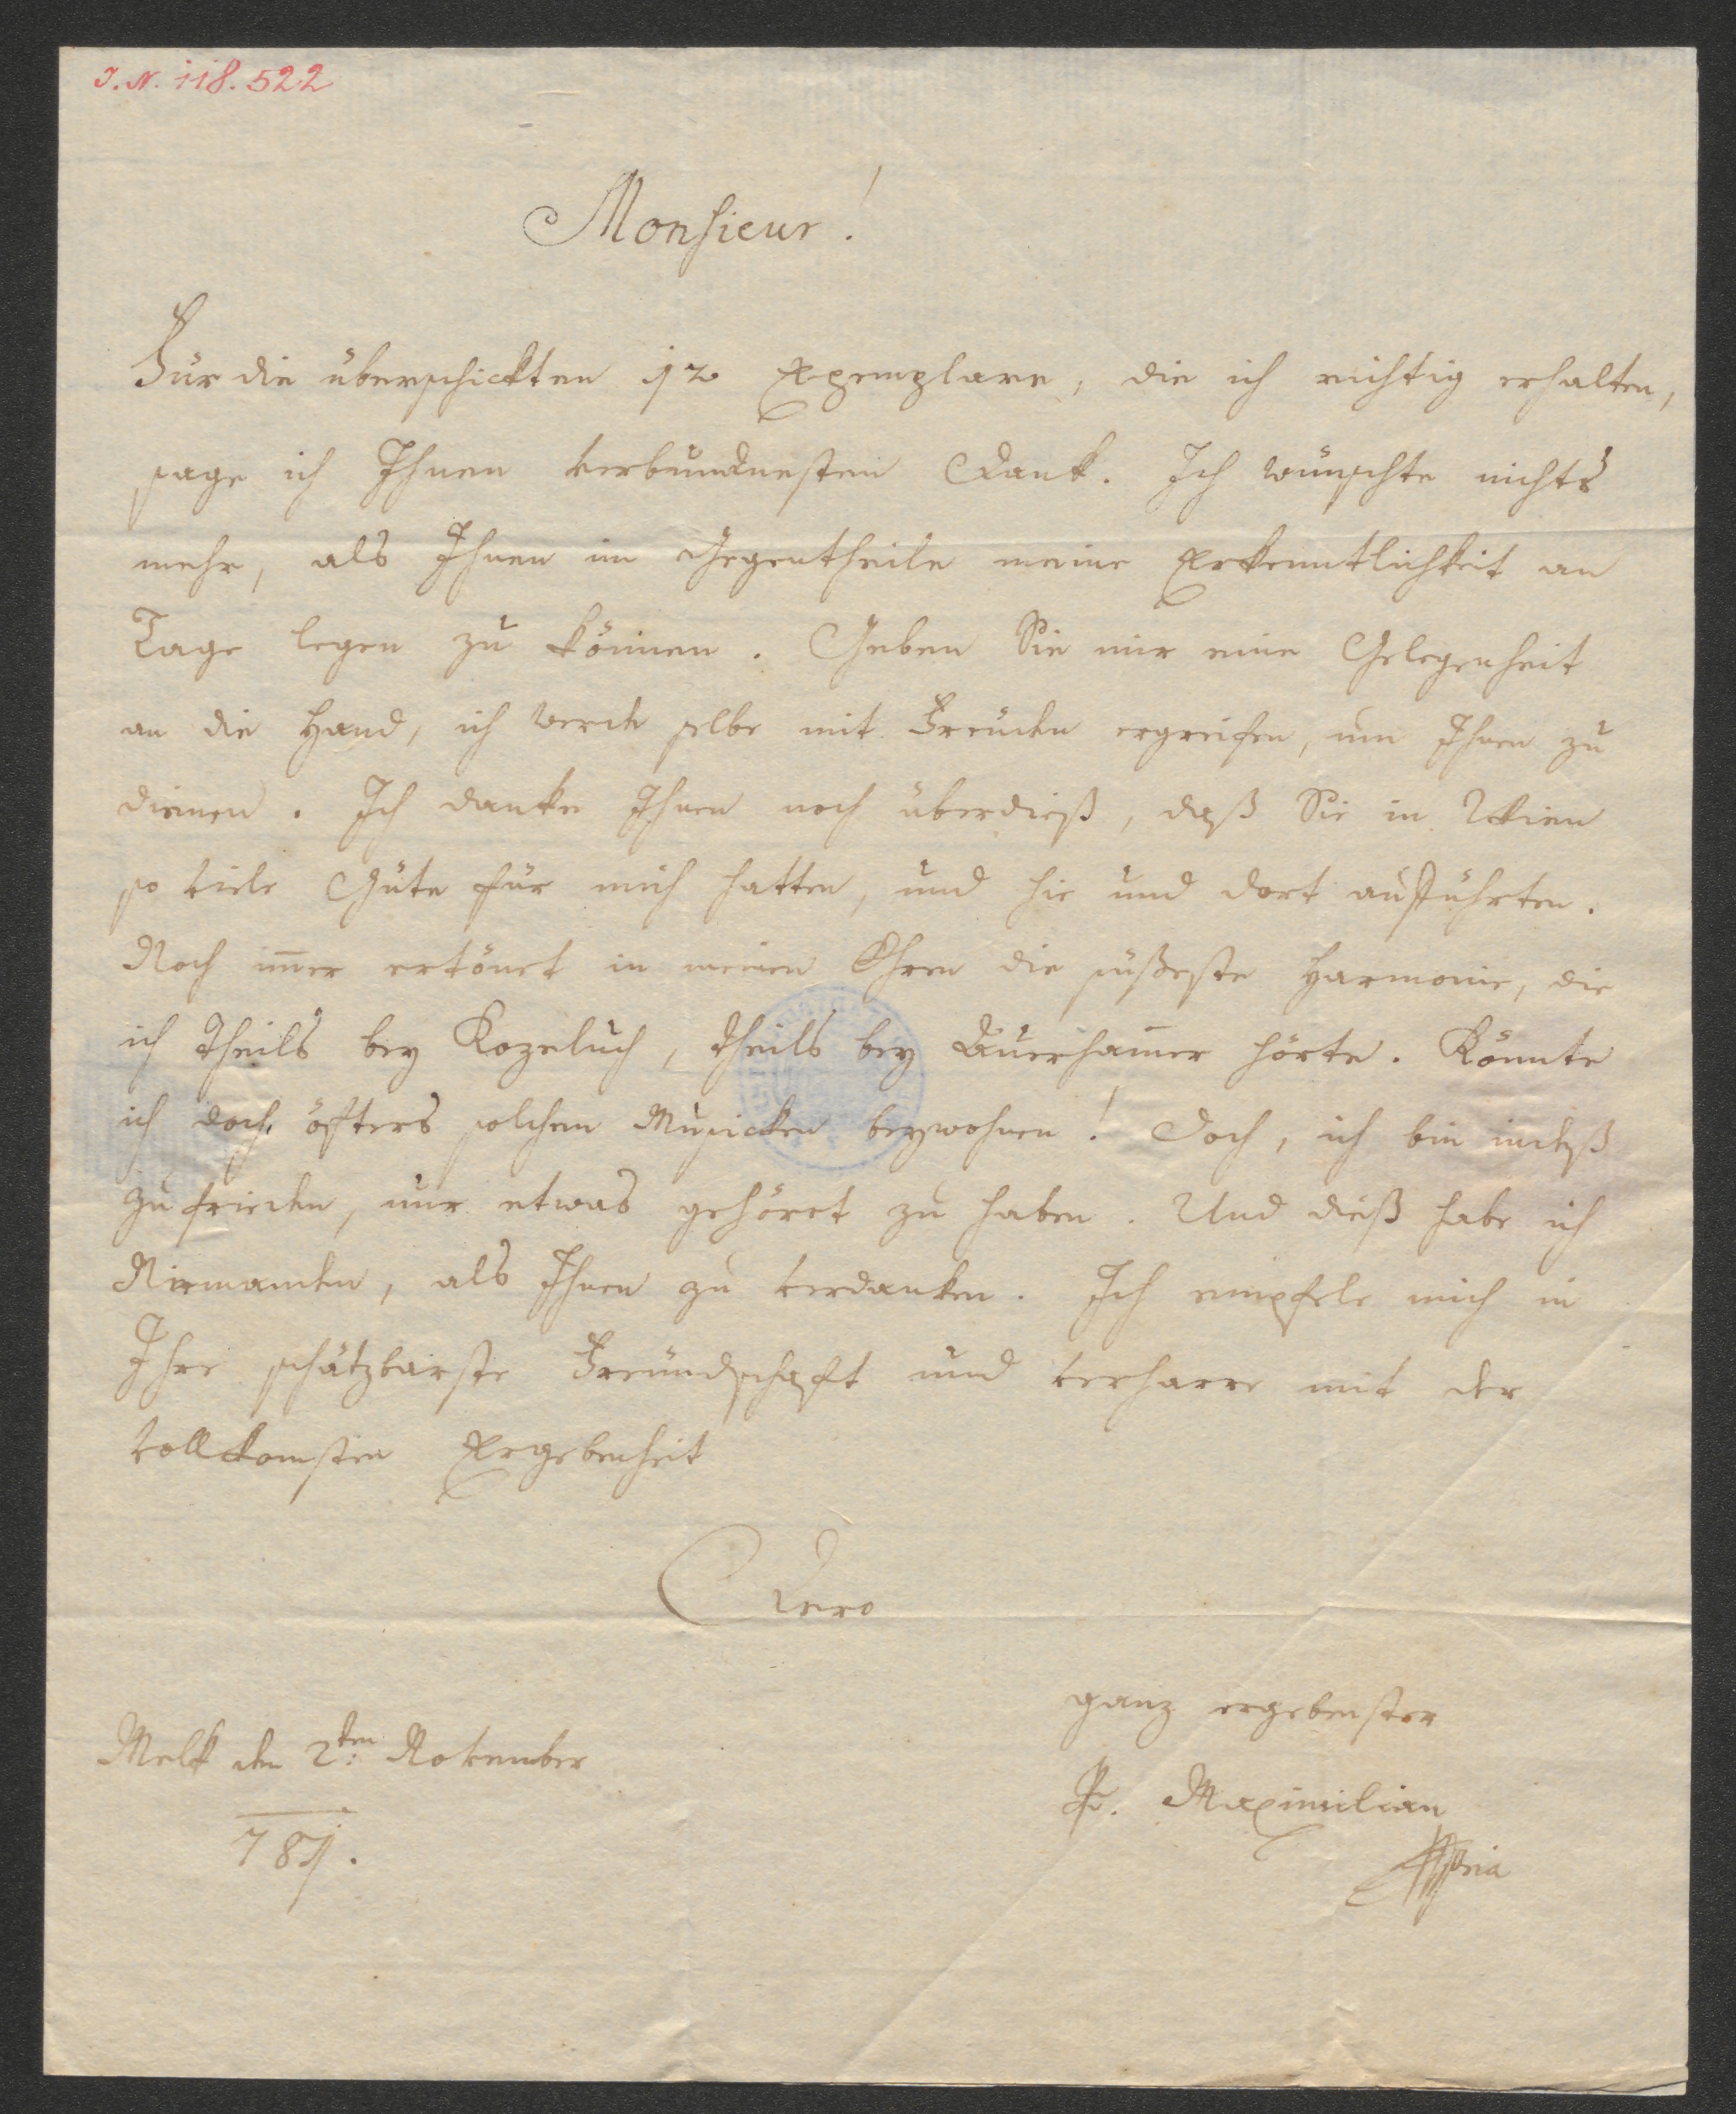 J. N. 118.522
Monsieur!
Für die überschickten 12 Exemplare, die ich richtig erhalten,
sage ich Ihnen verbundnesten Dank. Ich wünschte nichts
mehr, als Ihnen im Gegentheile meine Erkenntlichkeit an
Tage legen zu können. Geben Sie mir eine Gelegenheit
an die Hand, ich werde selbe mit Freuden ergreifen, um Ihnen zu
dienen. Ich danke Ihnen noch überdieß, daß Sie in Wien
so viele Güte für mich hatten, und hie und dort aufführten.
Noch im̅er ertönet in meinen Ohren die süßeste Harmonie, die
ich theils bey Kozeluch, theils bey Auerham̅er hörte. Könnte
ich doch öfters solchen Musicken beywohnen! Doch, ich bin indeß
zufrieden, nur etwas gehöret zu haben. Und dieß habe ich
Niemanden, als Ihnen zu verdanken. Ich empfele mich in
Ihre schätzbarste Freundschaft und verharre mit der
vollkomsten Ergebenheit
Dero
ganz ergebenster
Melk den 2ten November
P. Maximilian
781.